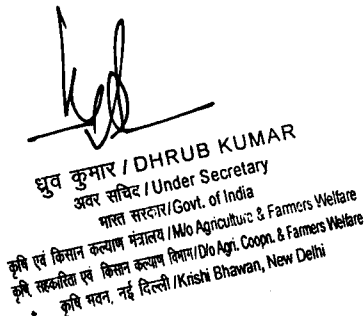 ध्रुव कुमार / DHRUB KUMAR
अवर सचिव / Under Secretary
भारत सरकार/Govt. of India
कृषि एवं किसान कल्याण मंत्रालय / M/o Agriculture & Farmers Welfare
कृषि सहकारिता एवं किसान कल्याण विभाग/D/o Agri. Coopn. & Farmers Welfare
कृषि भवन, नई दिल्ली /Krishi Bhawan, New Delhi